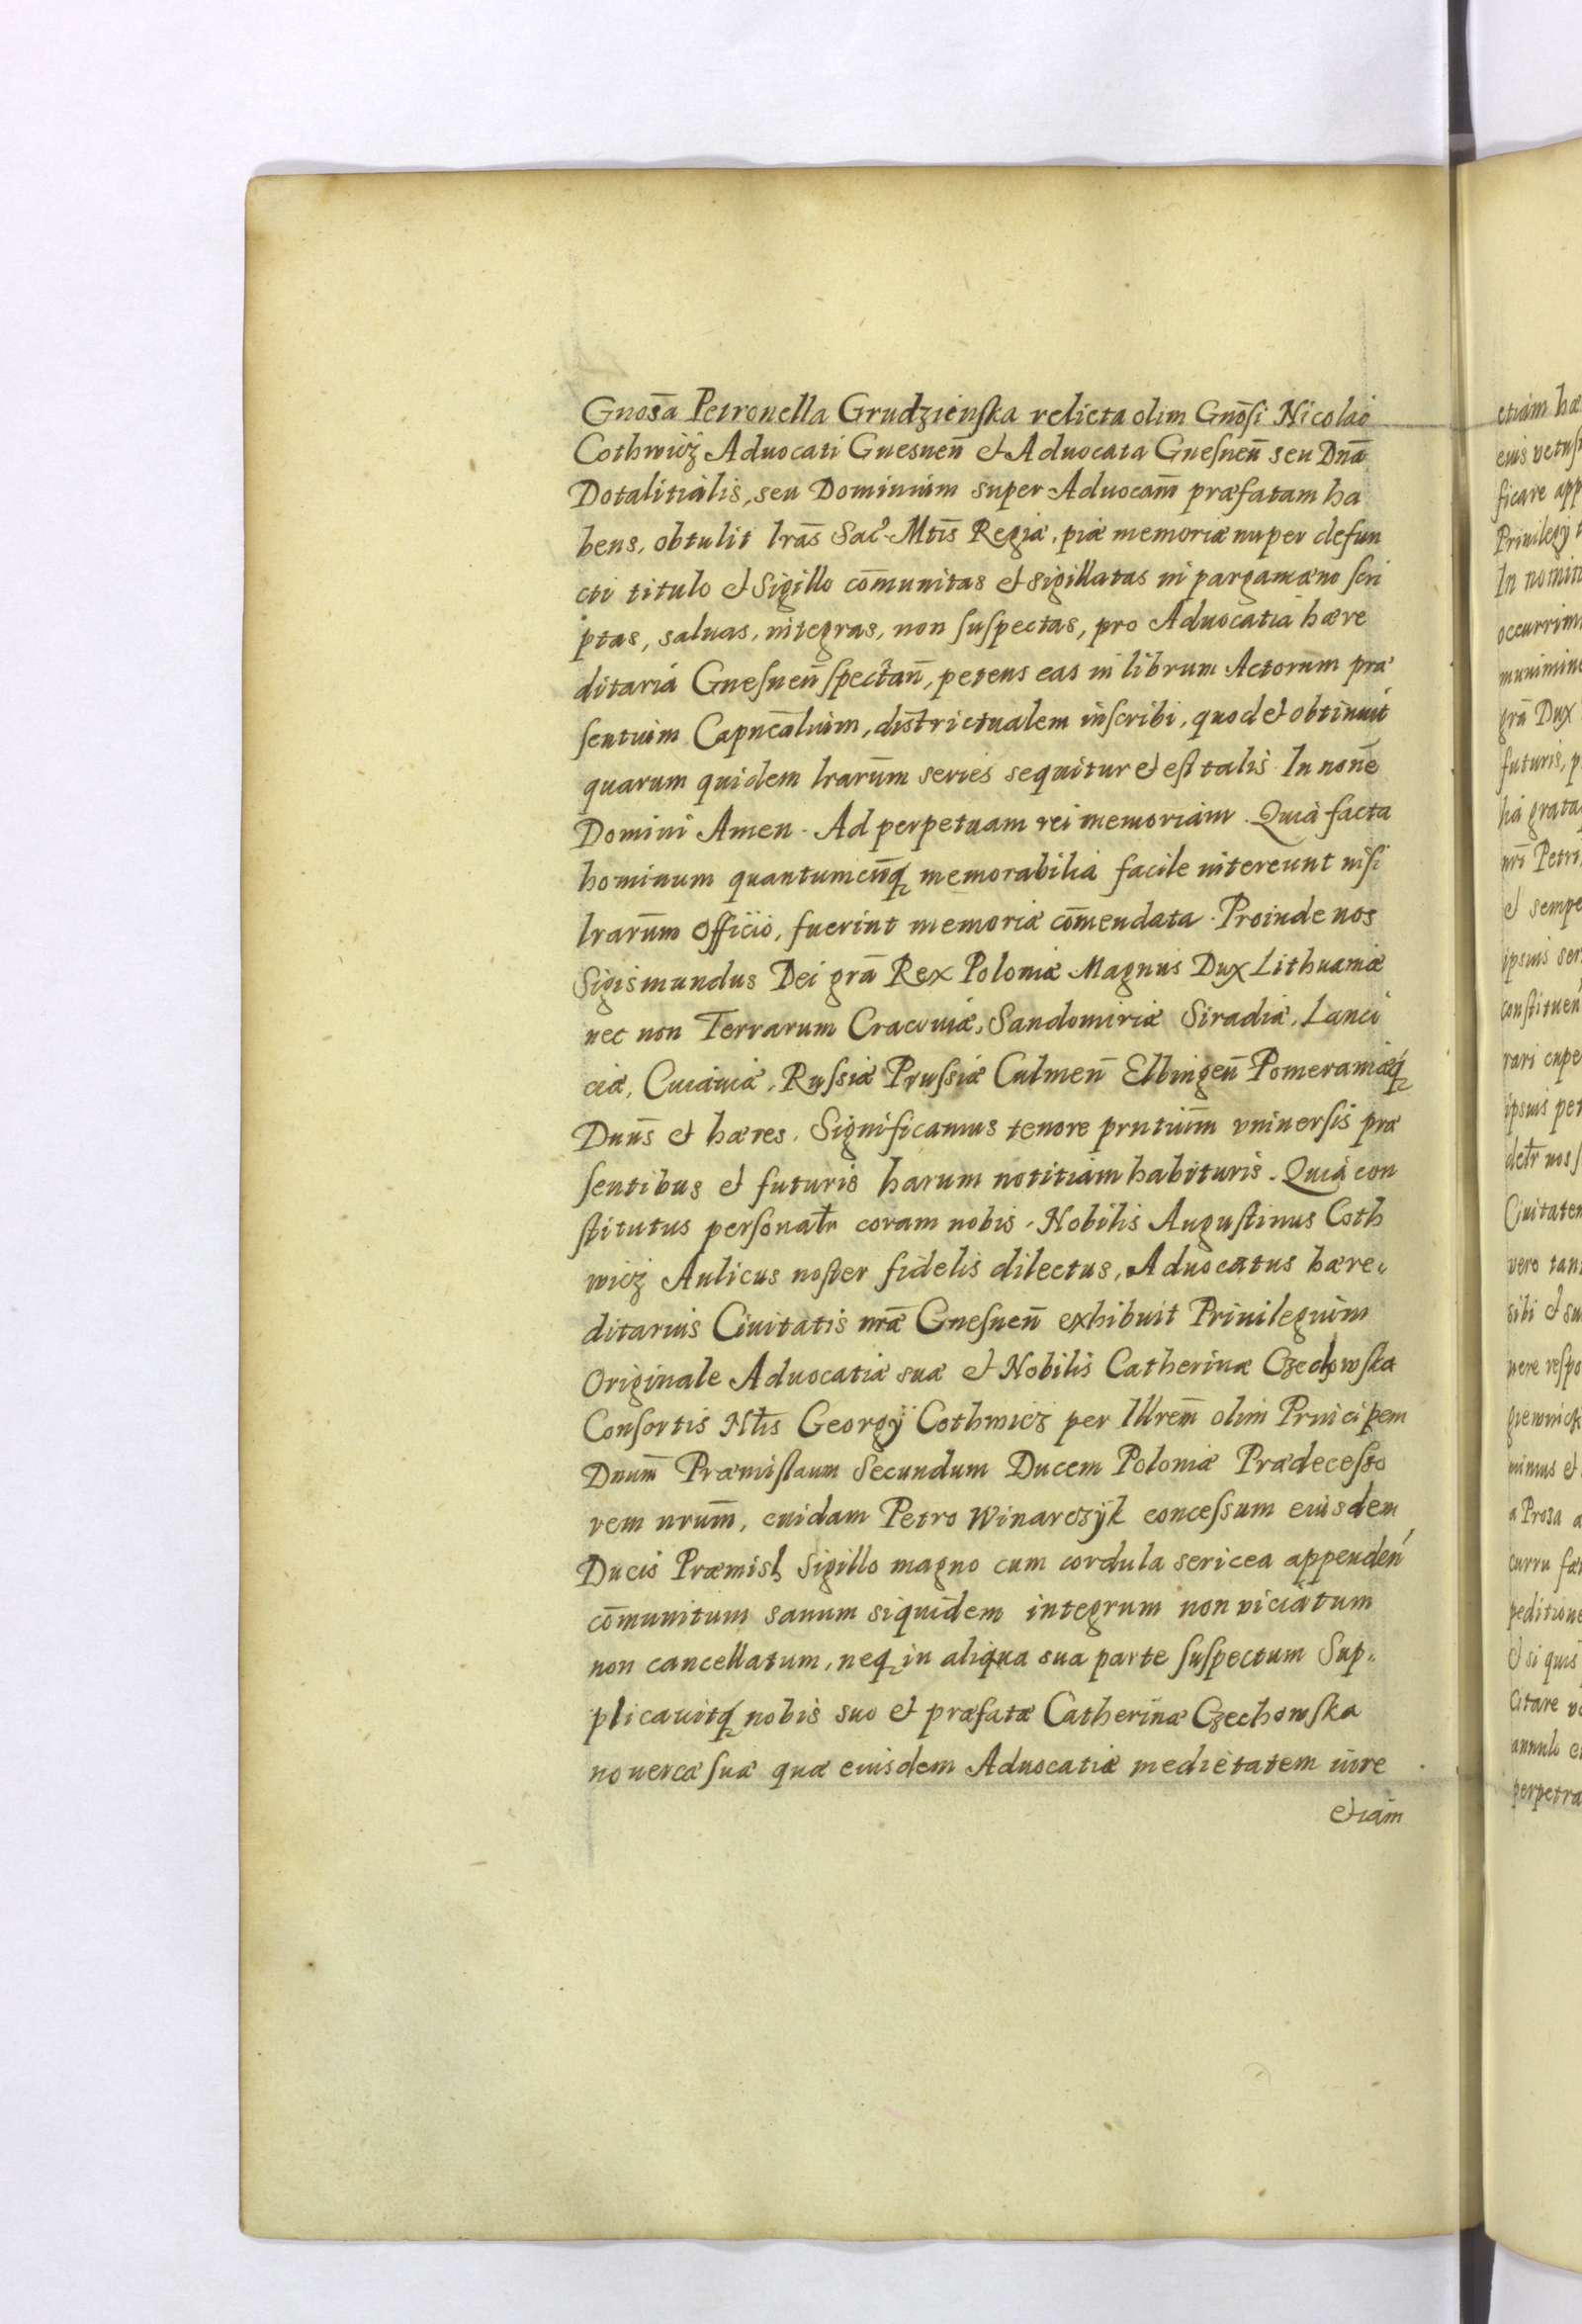 Gnosā Petronella Grudzienſka relicta olim Gnōſi Nicolai
Cothwicz Aduocati Gnesnen̄ et Aduocata Gneſnen̄ seu Dnā
Dotalitialis, seu Dominium super Aduocam̄ præfatam ha
bens, obtulit lrās Sac. Mtis̄ Regiæ, piæ memoriæ nuper defun
cti titulo et Sigillo cōmunitas et sigillatas in pargamæno ſcri
ptas, saluas, integras, non ſuſpectas, pro Aduocatia hære
ditaria Gneſnen̄ ſpectan̄, petens eas in librum Actorum præ
ſentium Capneālium, districtualem inſcribi, quod et obtinuit
quarum quidem lrarum̄ series sequitur et eſt talis. In nonē
Domini Amen. Ad perpetuam rei memoriam. Quia facta
hominum quantumcun̄q memorabilia facile intereunt niſi
lrarum̄ officio, fuerint memoriæ cōmendata. Proinde nos
Sigismundus Dei grā Rex Poloniæ Magnus Dux Lithuaniæ
nec non Terrarum Cracouiæ, Sandomiriæ Siradiæ, Lanci
ciæ, Cuiauiæ, Ruſsiæ Pruſsiæ Culmen̄ Elbingen̄ Pomeraniæq
Dnus̄ et hæres. Significamus tenore prntium̄ vniuerſis præ
ſentibus et futuris harum notitiam habituris. Quia con
ſtitutus perſonalr̄ coram nobis. Nobilis Auguſtinus Coth
wicz Aulicus noſter fidelis dilectus, Aduocatus hære„
ditarius Ciuitatis nrǣ Gneſnen̄ exhibuit Priuilegium
Originale Aduocatiæ suæ et Nobilis Catherinæ Czechowſka
Conſortis Nlis̄ Georgÿ Cothwicz per Illrem̄ olim Principem
Dnum̄ Præmiſlaum Secundum Ducem Poloniæ Prædeceſso
rem nrum̄, cuidam Petro Winarczÿk conceſsum eiusdem
Ducis Præmisl Sigillo magno cum cordula sericea appenden̄
cōmunitum sanum siquidem integrum non viciatum
non cancellatum, neq in aliqua sua parte ſuſpectum Sup„
plicauitq nobis suo et præfatæ Catherinæ Czechowſka
nouercæ ſuæ quæ eiusdem Aduocatiæ medietatem iure
etiam